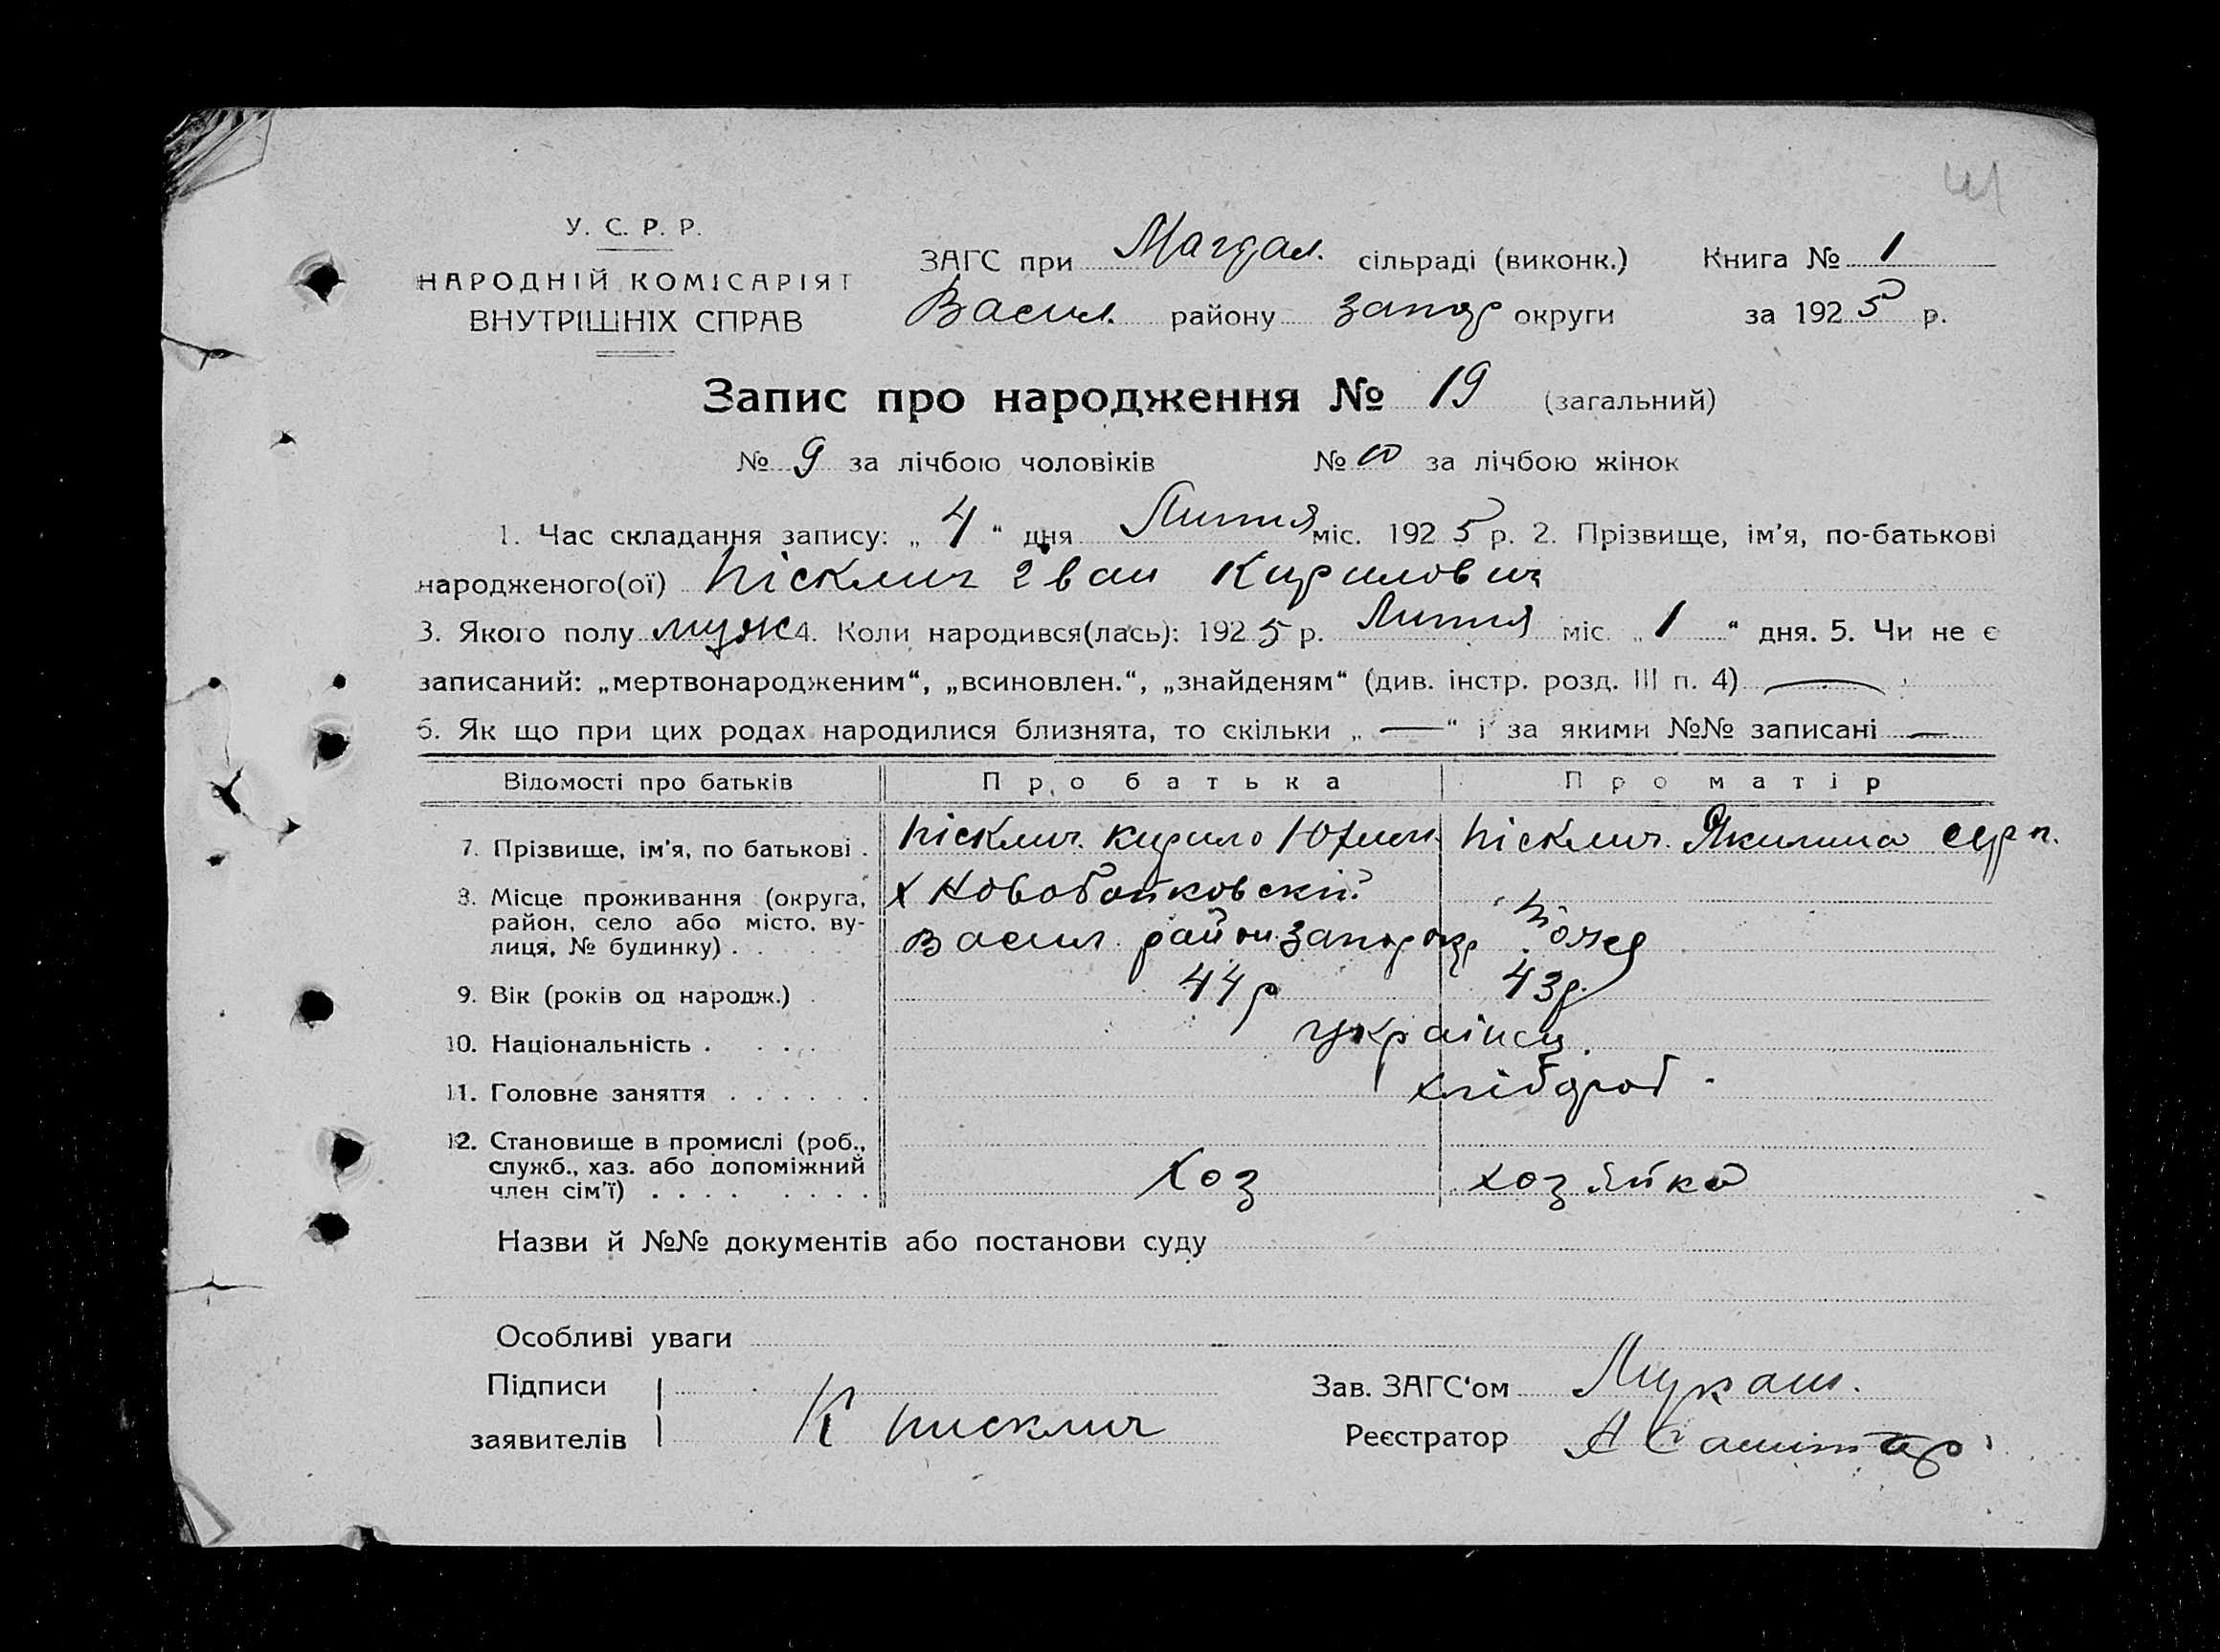 41
У. С. Р. Р.
НАРОДНІЙ КОМІСАРІЯТ
ВНУТРІШНІХ СПРАВ
ЗАГС при Магдал. сільраді (виконк.) Книга № 1
Васил. району запор округи за 1925 р.
Запис про народження № 19 (загальний)
№ 9 за лічбою чоловіків № за лічбою жінок
1. Час складання запису: „ 4 “ дня міс. 1925 р. 2. Прізвище, ім'я, по-батькові
народженого(ої) Пісклич Іван Кирилович
3. Якого полу муж 4. Коли народився(лась): 1925 р. міс. „ 1 “ дня. 5. Чи не є
записаний: „мертвонародженим“, „всиновлен.“, „знайденям“ (див. інстр. розд. III п. 4) —
6. Як що при цих родах народилися близнята, то скільки „ — “ і за якими №№ записані —
Відомості про батьків Про батька Про матір
7. Прізвище, ім'я, по батькові . Пісклич. Кирило Юхим. Пісклич. Якилина
8. Місце проживання (округа, район, село або місто, вулиця, № будинку) . . Х
Васил район Запор окр Тоже
9. Вік (років од народж.) . 44р 43р.
10. Національність . . . . українц.
11. Головне заняття . . . . . . хлібороб.
12. Становище в промислі (роб.,
служб., хаз. або допоміжний
член сім'ї) . . . . . . . . Хоз хозяйка
Назви й №№ документів або постанови суду
Особливі уваги
Підписи Зав. ЗАГС'ом
заявителів К Писклич Реєстратор А